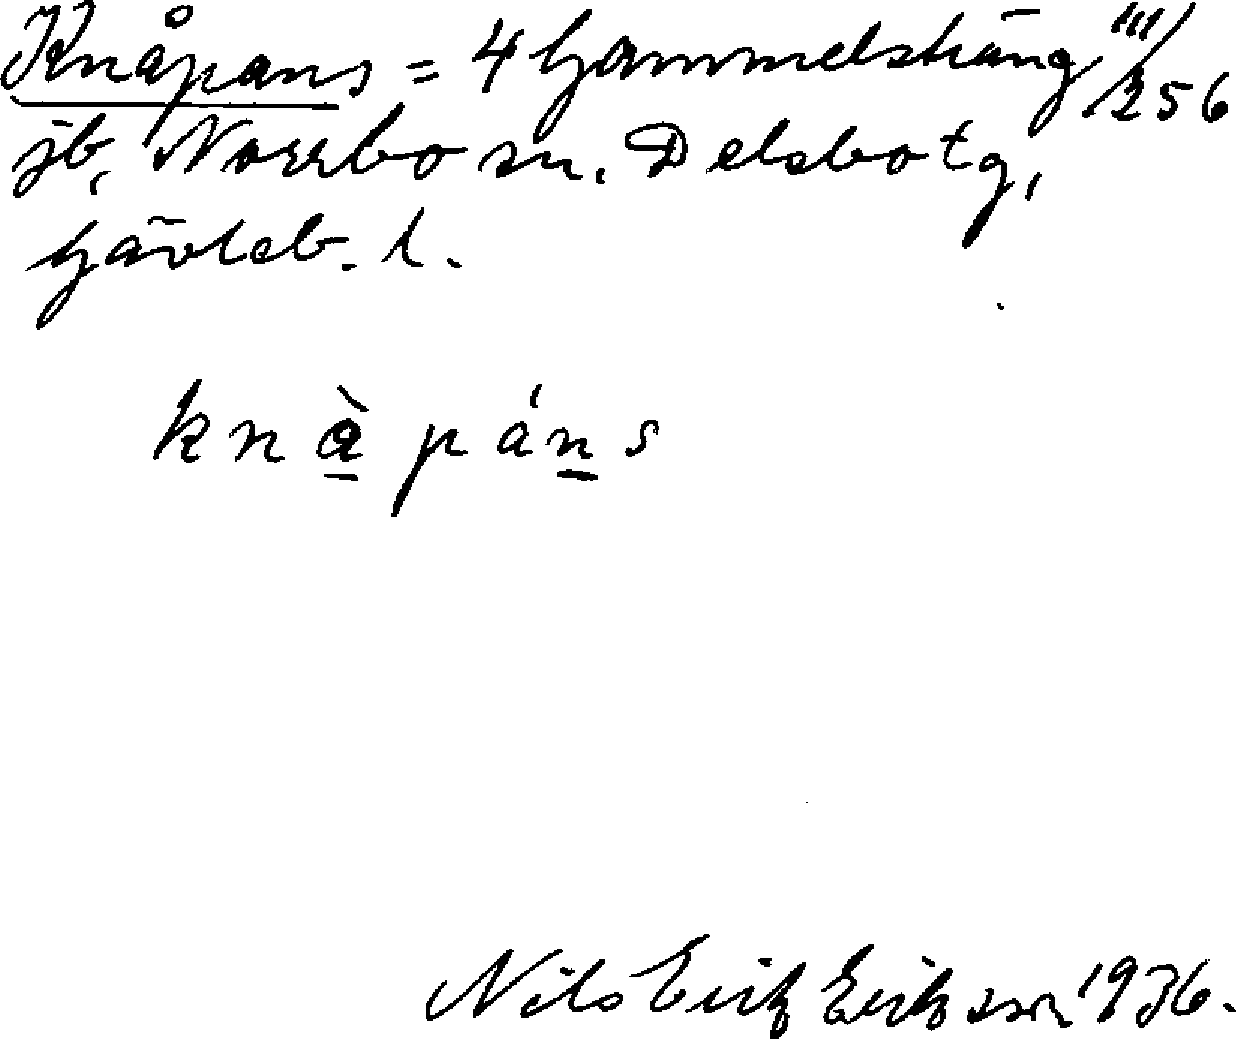 Knåpans = 4 Gammelsträng III/256
jb, Norrbo sn. Delsbo tg,
Gävleb. l.
kn<u>à</u> p á<u>n</u> s
Nils Erik Eriksson 1936.